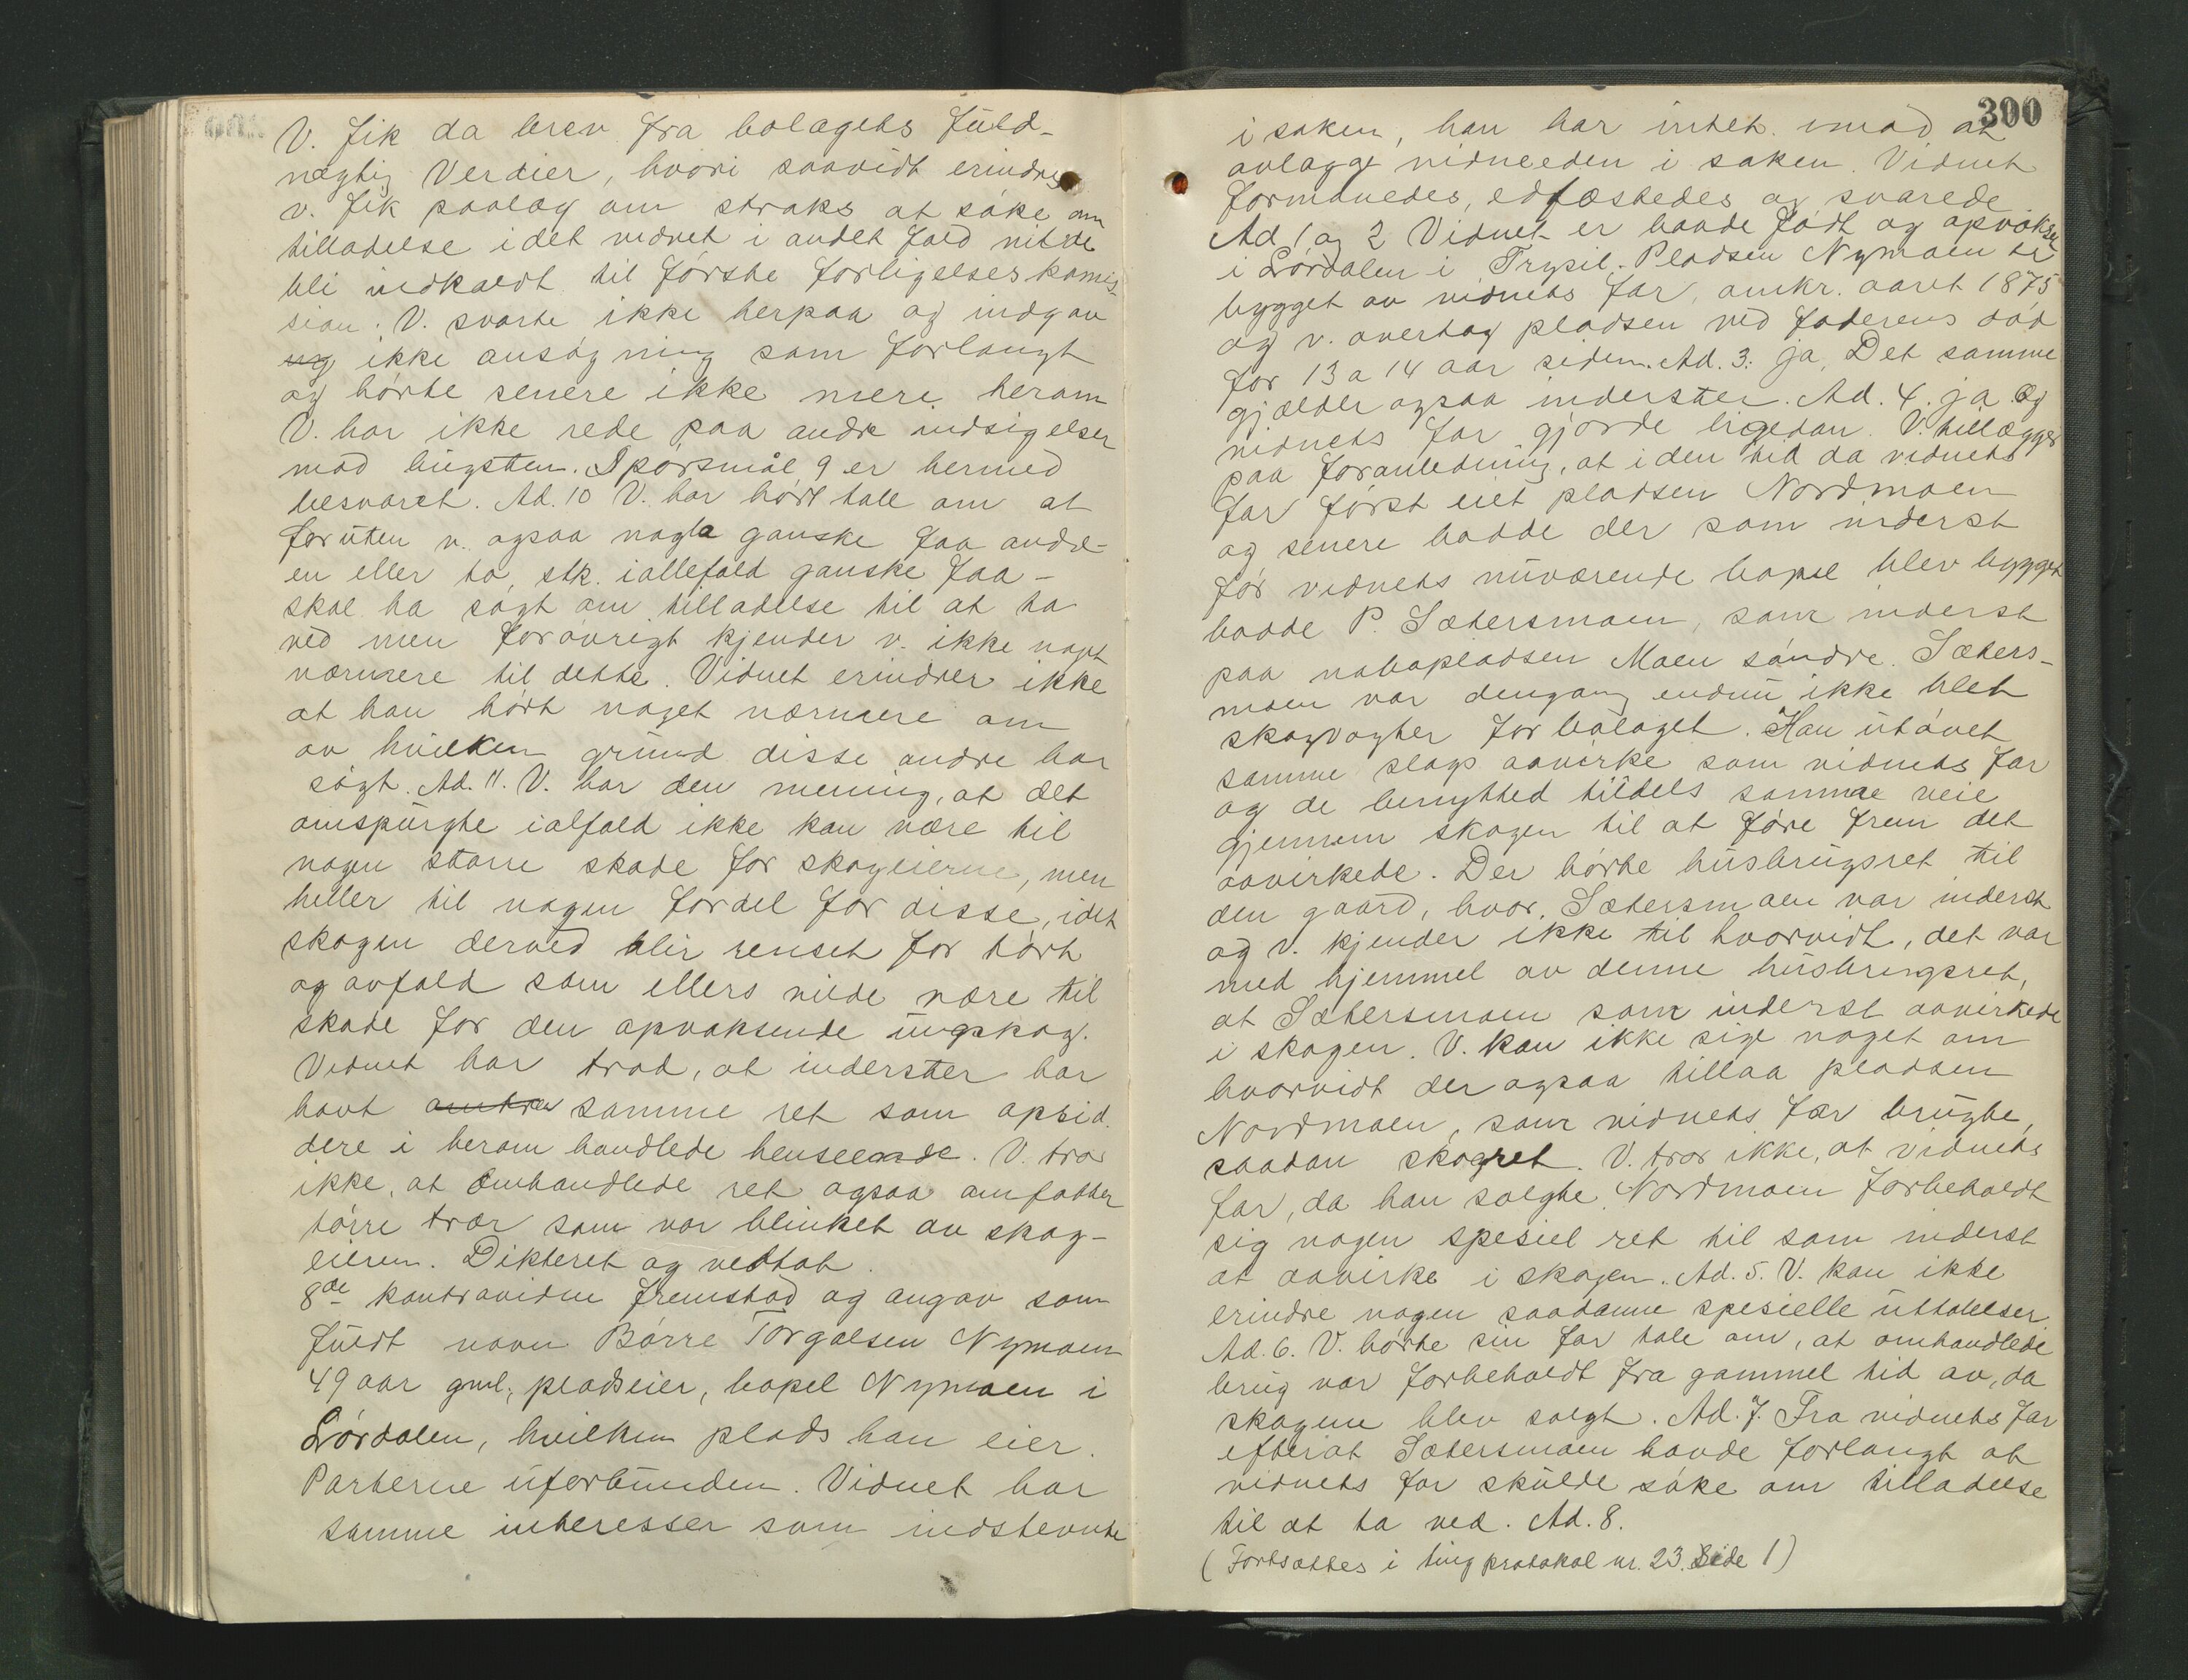 V. fik da brev fra bolagets fuld-
mægtig Verdier, hvori saavidt erindres
v. fik paalæg om straks at søke om
tilladelse idet vidnet i andet fald vilde
bli indkaldt til første forligelseskomis-
sion. V. svarte ikke herpaa og indgav
ikke ansøgning som forlangt
og hørte senere ikke mere herom
V. har ikke rede paa andre indsigelser
mod bugsten. Spørsmål 9 er hermed
besvaret. Ad. 10 V. har hørt tale om at
foruten v. ogsaa nogle ganske faa andre
en eller to stk. iallefald ganske faa –
skal ha søgt om tilladelse til at ta
ved men forøvrigt kjender v. ikke noget
nærmere til dette. Vidnet erindrer ikke
at han hørt noget nærmere om
av hvilken grund disse andre har
søgt. Ad. 11. V. har den mening, at det
omspurgte ialfald ikke kan være til
nogen større skade for skogeierne, men
heller til nogen fordel for disse, idet
skogen derved blir renset for tørt
og avfald som ellers vilde være til
skade for den opvoksende ungskog.
Vidnet har trod, at inderster har
havt samme ret som opsid.
dere i herom handlede henseende. V. tror
ikke, at omhandlede ret ogsaa omfatter
tørre trær som var blinket av skog-
eieren. Dikteret og vedtat.
8de kontravidne fremstod og angav som
fuldt navn Børre Torgalsen Nymoen
49 aar gml, pladseier, bopel Nymoen i
Lørdalen, hvilken plads han eier.
Parterne uforbunden. Vidnet har
samme interesser som indstevnte
300
i saken, han har intet imod at
avlægge vidneeden i saken. Vidnet
formanedes, edfæstedes og svarede
Ad 1 og 2 Vidnet er baade født og opvokset
i Lørdalen i Trysil. Pladsen Nymoen er
bygget av vidnets far, omkr. aaret 1875
og v. overtog pladsen ved faderens død
for 13 a 14 aar siden. Ad. 3: ja, Det samme
gjælder ogsaa inderster. Ad. 4. ja og
vidnets far gjorde ligedan. V. tillægger
paa foranledning, at i den tid da vidnets
far først eiet pladsen Nordmoen
og senere bodde der som inderst
før vidnets nuværende bopel blev bygget
bodde P. Sætersmoen, som inderst
paa nabopladsen Moen søndre. Sæters-
moen var dengang endnu ikke blet
skogvogter for bolaget. Han utøvet
samme slags aavirke som vidnets far
og de benytted tildels samme veie
gjennem skogen til at føre frem det
aavirkede. Der hørte husbrugsret til
den gaard, hvor Sætersmoen var inderst
og V. kjender ikke til hvorvidt, det var
med hjemmel av denne husbrugsret,
at Sætersmoen som inderst aavirkede
i skogen. V. kan ikke sige noget om
hvorvidt der ogsaa tillaa pladsen
Nordmoen, som vidnets far brugte,
saadan skogret. V. tror ikke, at vidnets
far, da han solgte Nordmoen forbeholdt
sig nogen spesiel ret til som inderst
at aavirke i skogen. Ad. 5. V. kan ikke
erindre nogen saadanne spesielle uttalelser.
Ad. 6. V. hørte sin far tale om, at omhandlede
brug var forbeholdt fra gammel tid av, da
skogene blev solgt. Ad. 7. Fra vidnets far
efterat Sætersmoen havde forlangt at
vidnets far skulde søke om tilladelse
til at ta ved. Ad. 8.
(Fortsættes i tingprotokol nr. 23. Side 1)